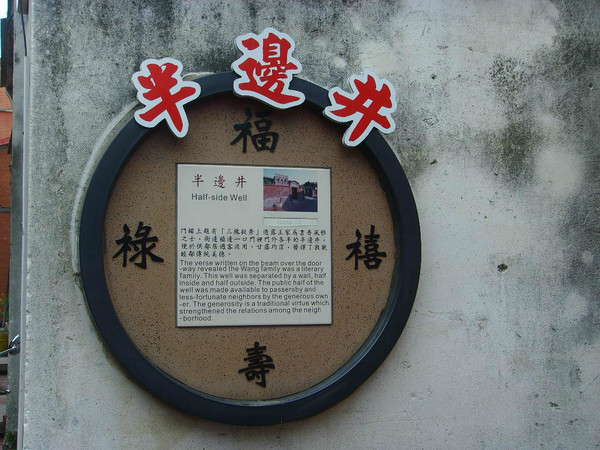 半邊井
福
祿
禧
壽
半邊井
Half-side Well
門楣上題有「三槐挺秀」透露王家為書香風雅
之士，街道牆邊一口門裡門外各半的半邊井，
便於供鄰居過客汲用，甘露均霑，發揮了敦親
睦鄰傳統美德。
The verse written on the beam over the door
-way revealed the Wang family was a literary
family. This well was separated by a wall, half
inside and half outside. The public half of the
well was made available to passersby and
less-fortunate neighbors by the generous own
-er. The generosity is a traditional virtue which
strengthened the relations among the neigh
-borhood.